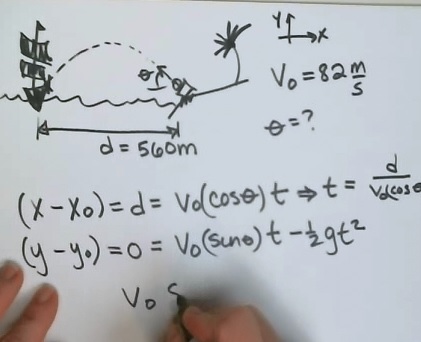 Y
X
V₀ = 82 m/s
θ
θ = ?
d = 560m
(x - x₀) = d = V₀(cosθ)t ⇒ t = d/V₀(cosθ
(y - y₀) = 0 = V₀(sinθ)t - ½gt²
V₀ s